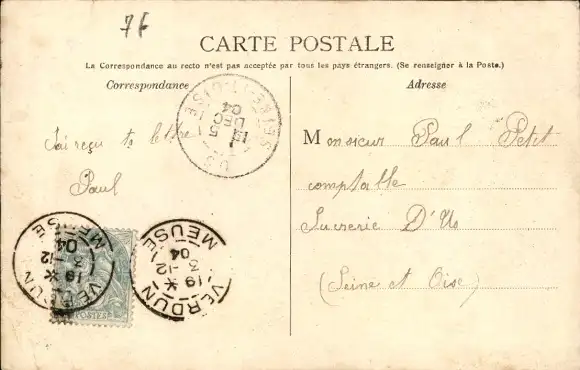 76
CARTE POSTALE
La Correspondance au recto n'est pas acceptée par tous les pays étrangers. (Se renseigner à la Poste.)
Correspondance
Adresse
J'ai reçu ta lettre
Paul
Monsieur Paul Petit
comptable
Sucrerie D'Us
(Seine et Oise)
US
SEINE-ET-OISE
15
DEC
04
VERDUN
19 *
3-12
04
MEUSE
VERDUN
19 *
3-12
04
MEUSE
POSTES